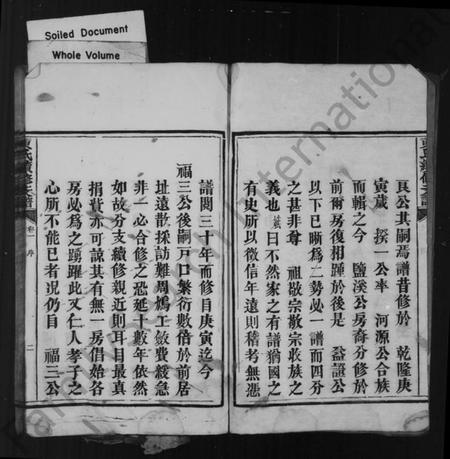 Soiled Document
Whole Volume
良公其嗣焉譜昔修於　乾隆庚
寅歲　揆一公率　河源公合族
而輯之今　鹽溪公房裔分修於
前爾房復相踵於後是　益證公
以下已睽為二勢必一譜而四分
之甚非尊　祖敬宗敬宗收族之
義也　曰不然家之有譜猶國之
有史所以徵信年遠則稽考無憑
譜閱三十年而修自庚寅迄今
福三公後嗣戶口繁衍數倍於前居
址遠散採訪難周鳩工斂費緩急
非一必合修之恐延十數年依然
如故分支續修親近則耳目最真
捐貲亦可諒其有無一房倡始各
房必為之踴躍此又仁人孝子之
心所不能已者況仍自　福三公
卷一 序
二